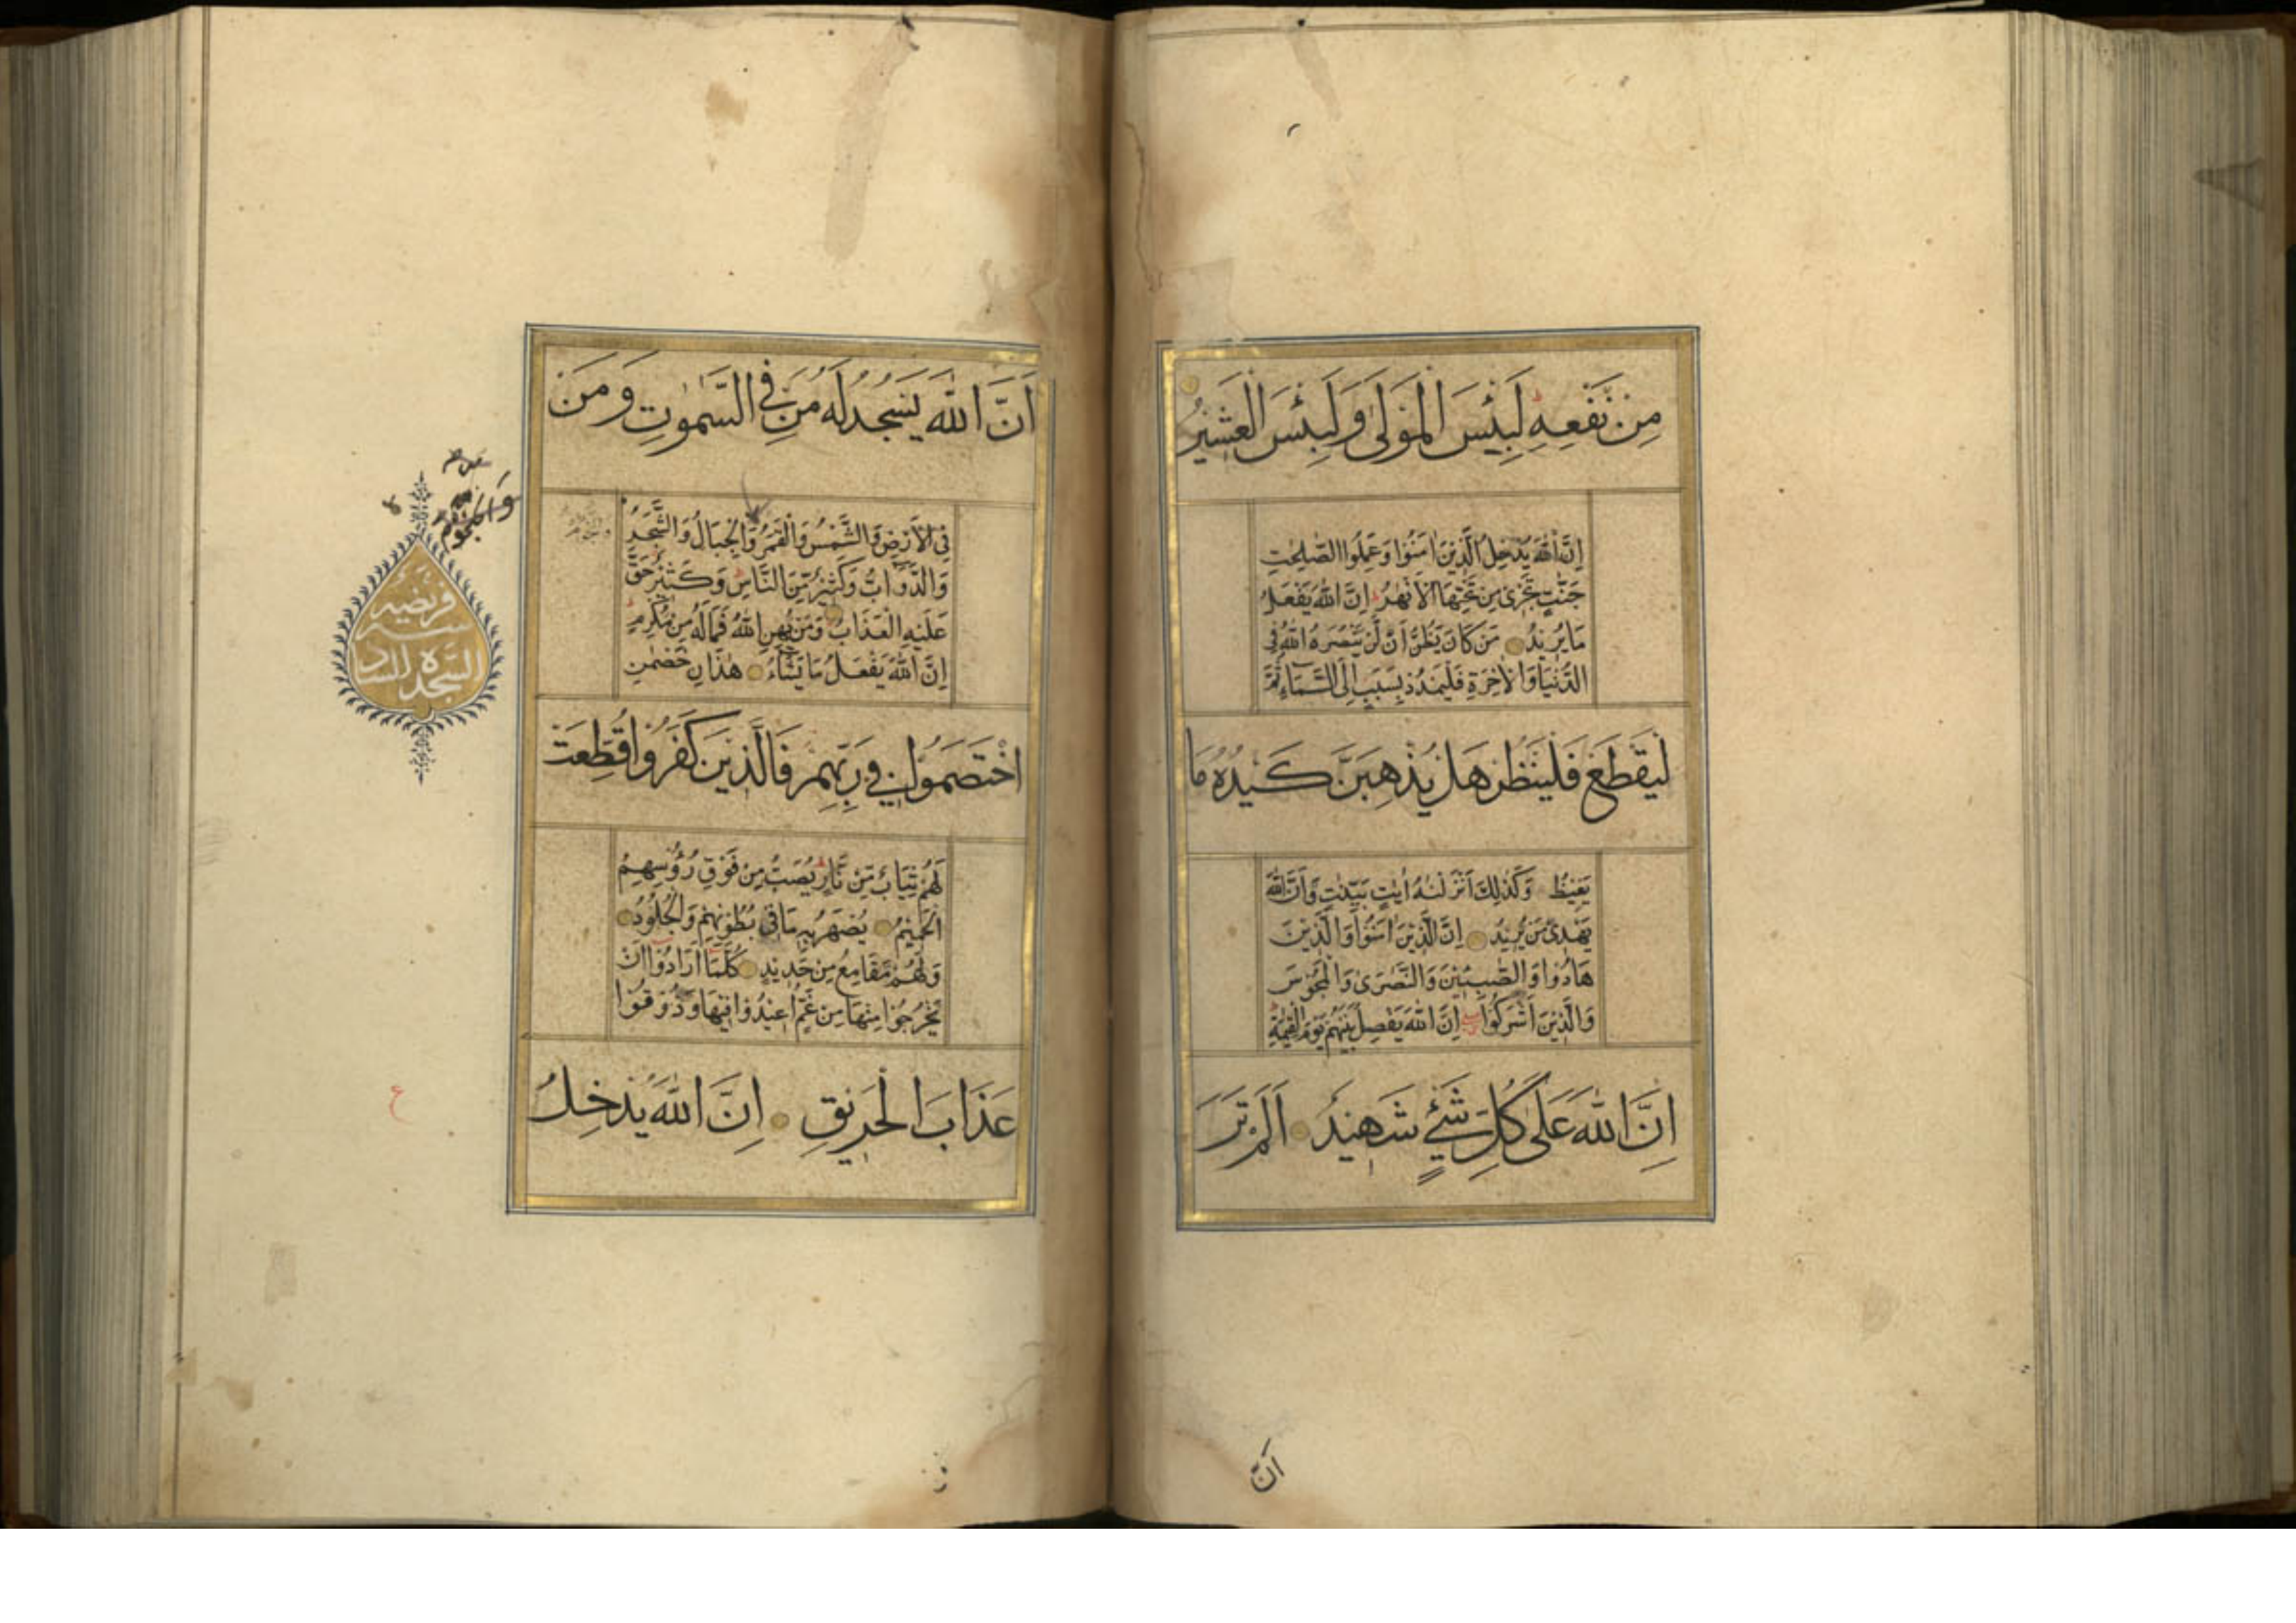 مِنْ نَفْعِهِ لَبِئْسَ الْمَوْلٰى وَلَبِئْسَ الْعَشِيْرُ
اِنَّ اللّٰهَ يُدْخِلُ الَّذِيْنَ اٰمَنُوْا وَعَمِلُوا الصّٰلِحٰتِ
جَنّٰتٍ تَجْرِىْ مِنْ تَحْتِهَا الْاَنْهٰرُ اِنَّ اللّٰهَ يَفْعَلُ
مَا يُرِيْدُ مَنْ كَانَ يَظُنُّ اَنْ لَنْ يَنْصُرَهُ اللّٰهُ فِى
الدُّنْيَا وَالْاٰخِرَةِ فَلْيَمْدُدْ بِسَبَبٍ اِلَى السَّمَاءِ ثُمَّ
لْيَقْطَعْ فَلْيَنْظُرْ هَلْ يُذْهِبَنَّ كَيْدُهُ مَا
يَغِيْظُ وَكَذٰلِكَ اَنْزَلْنٰهُ اٰيٰتٍ بَيِّنٰتٍ وَاَنَّ اللّٰهَ
يَهْدِىْ مَنْ يُرِيْدُ اِنَّ الَّذِيْنَ اٰمَنُوْا وَالَّذِيْنَ
هَادُوْا وَالصّٰبِئِيْنَ وَالنَّصٰرٰى وَالْمَجُوْسَ
وَالَّذِيْنَ اَشْرَكُوْا اِنَّ اللّٰهَ يَفْصِلُ بَيْنَهُمْ يَوْمَ الْقِيٰمَةِ
اِنَّ اللّٰهَ عَلٰى كُلِّ شَيْءٍ شَهِيْدٌ اَلَمْ تَرَ
اَنَّ
اَنَّ اللّٰهَ يَسْجُدُ لَهُ مَنْ فِى السَّمٰوٰتِ وَمَنْ
فِى الْاَرْضِ وَالشَّمْسُ وَالْقَمَرُ وَالْجِبَالُ وَالشَّجَرُ
وَالدَّوَابُّ وَكَثِيْرٌ مِنَ النَّاسِ وَكَثِيْرٌ حَقَّ
عَلَيْهِ الْعَذَابُ وَمَنْ يُهِنِ اللّٰهُ فَمَا لَهُ مِنْ مُكْرِمٍ
اِنَّ اللّٰهَ يَفْعَلُ مَا يَشَاءُ هٰذَانِ خَصْمٰنِ
اخْتَصَمُوْا فِىْ رَبِّهِمْ فَالَّذِيْنَ كَفَرُوْا قُطِّعَتْ
لَهُمْ ثِيَابٌ مِنْ نَارٍ يُصَبُّ مِنْ فَوْقِ رُؤُسِهِمُ
الْحَمِيْمُ يُصْهَرُ بِهِ مَا فِىْ بُطُوْنِهِمْ وَالْجُلُوْدُ
وَلَهُمْ مَقَامِعُ مِنْ حَدِيْدٍ كُلَّمَا اَرَادُوْا اَنْ
يَخْرُجُوْا مِنْهَا مِنْ غَمٍّ اُعِيْدُوْا فِيْهَا وَذُوْقُوْا
عَذَابَ الْحَرِيْقِ اِنَّ اللّٰهَ يُدْخِلُ
وَالنُّجُوْمُ
السجده
ع